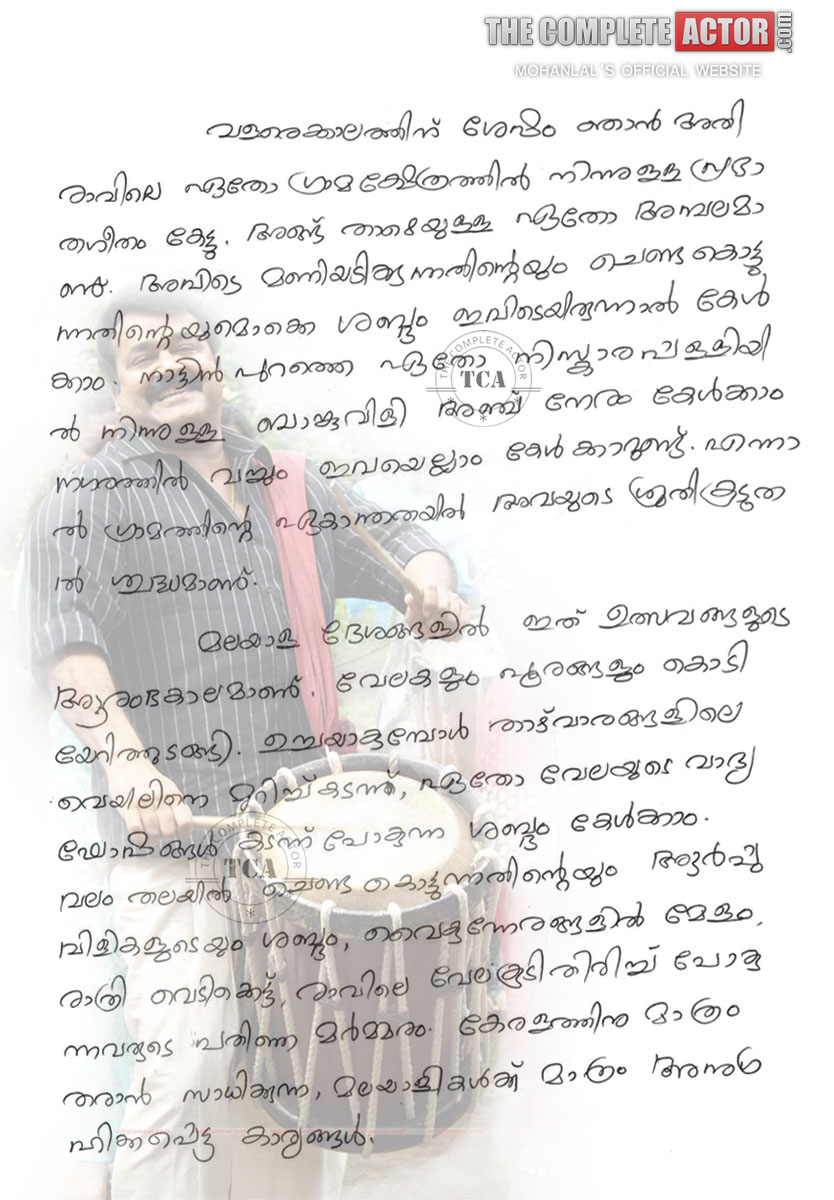 THE COMPLETE ACTOR.com
MOHANLAL'S OFFICIAL WEBSITE
വളരെക്കാലത്തിന് ശേഷം ഞാൻ അതി
രാവിലെ ഏതോ ഗ്രാമക്ഷേത്രത്തിൽ നിന്നുള്ള പ്രഭാ
തഗീതം കേട്ടു. അങ്ങ് താഴെയുള്ള ഏതോ അമ്പലമാ
ണ്. അവിടെ മണിയടിക്കുന്നതിന്റെയും ചെണ്ട കൊട്ടു
ന്നതിന്റെയുമൊക്കെ ശബ്ദം ഇവിടെയിരുന്നാൽ കേൾ
ക്കാം. നാട്ടിൻ പുറത്തെ ഏതോ നിസ്കാരപള്ളിയി
ൽ നിന്നുള്ള ബാങ്കുവിളി അഞ്ച് നേരം കേൾക്കാം
നഗരത്തിൽ വച്ചും ഇവയെല്ലാം കേൾക്കാറുണ്ട്. എന്നാ
ൽ ഗ്രാമത്തിന്റെ ഏകാന്തതയിൽ അവയുടെ ശ്രുതി കൂടുത
ൽ ശുദ്ധമാണ്.
മലയാള ദേശങ്ങളിൽ ഇത് ഉത്സവങ്ങളുടെ
ആരംഭകാലമാണ്. വേലകളും പൂരങ്ങളും കൊടി
യേറിത്തുടങ്ങി. ഉച്ചയാകുമ്പോൾ താഴ്വാരങ്ങളിലെ
വെയിലിനെ മുറിച്ച് കടന്ന്, ഏതോ വേലയുടെ വാദ്യ
ഘോഷങ്ങൾ കടന്ന് പോകുന്ന ശബ്ദം കേൾക്കാം.
വലം തലയിൽ ചെണ്ട കൊട്ടുന്നതിന്റെയും ആർപ്പു
വിളികളുടെയും ശബ്ദം, വൈകുന്നേരങ്ങളിൽ മേളം,
രാത്രി വെടിക്കെട്ട്, രാവിലെ വേലകൂടി തിരിച്ച് പോകു
ന്നവരുടെ പതിഞ്ഞ മർമ്മരം. കേരളത്തിനു മാത്രം
തരാൻ സാധിക്കുന്ന, മലയാളികൾക്ക് മാത്രം അനുഗ്ര
ഹിക്കപ്പെട്ട കാര്യങ്ങൾ.
THE COMPLETE ACTOR
TCA
THE COMPLETE ACTOR
TCA